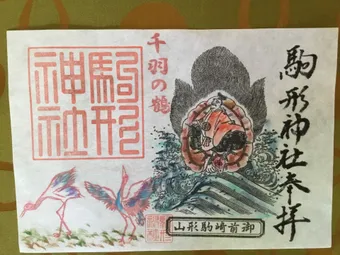 駒形神社奉拝
千羽の鶴
駒形
神社
御前崎駒形山